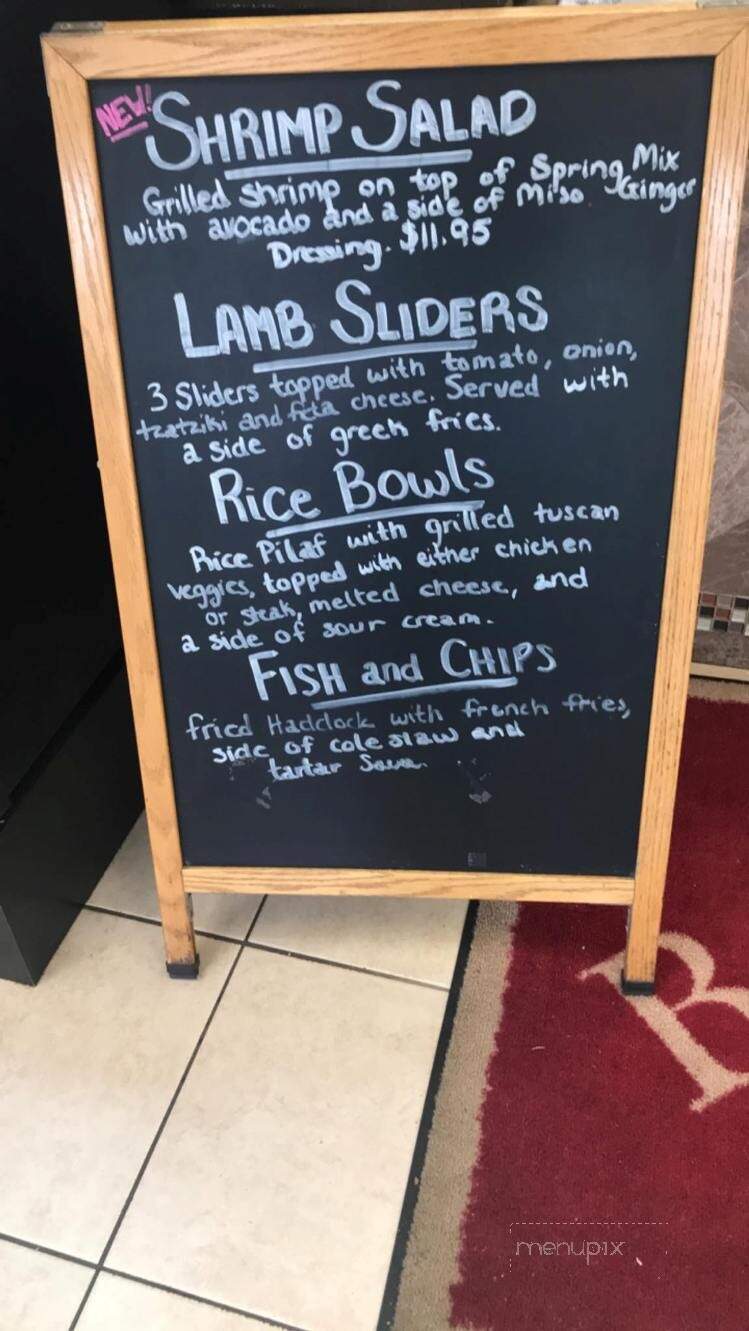 NEW!
SHRIMP SALAD
Grilled shrimp on top of Spring Mix
with avocado and a side of Miso Ginger
Dressing. $11.95
LAMB SLIDERS
3 Sliders topped with tomato, onion,
tzatziki and feta cheese. Served with
a side of greek fries.
Rice Bowls
Rice Pilaf with grilled tuscan
veggies, topped with either chicken
or steak, melted cheese, and
a side of sour cream.
FISH and CHIPS
fried Haddock with french fries,
side of coleslaw and
tartar
B
menupix